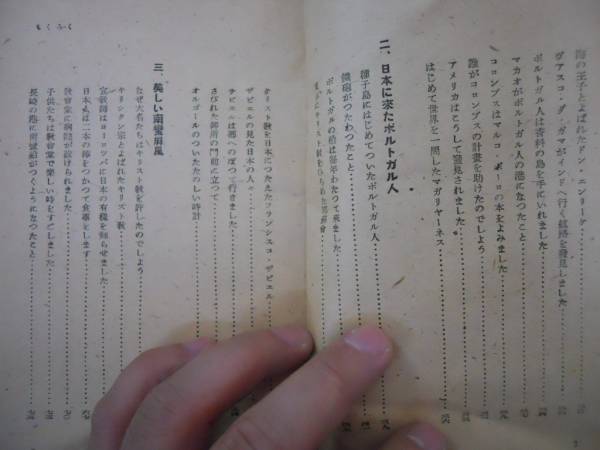 海の王子とよばれたドン・エンリーケ
ヴァスコ・ダ・ガマがインドへ行く航路を發見しました
ポルトガル人は香料の島を手にいれました
マカオがポルトガル人の港になつたこと
コロンブスはマルコ・ポーロの本をよみました
誰がコロンブスの計畫を助けたのでしよう
アメリカはこうして發見されました
はじめて世界を一周したマガリャーネス
二、日本に來たポルトガル人
種子島にはじめてついたポルトガル人
鐵砲がつたわつたこと
ポルトガルの船は每年わたつて來ました
キリスト敎を日本につたえたフランシスコ・ザビエル
ザビエルの見た日本の人々
ザビエルは都へのぼつて行きました
さびれた御所の門前に立つて
オルゴールのついたたのしい時計
三、美しい南蠻屛風
なぜ大名たちはキリスト敎を許したのでしよう
キリシタン宗とよばれたキリスト敎
宣敎師はヨーロツパに日本の有樣を知らせました
日本人は二本の棒をつかつて食事をします
敎會堂に病院が設けられました
子供たちは敎會堂で樂しい時をすごしました
長崎の港に南蠻船がつくようになつたこと
もくろく